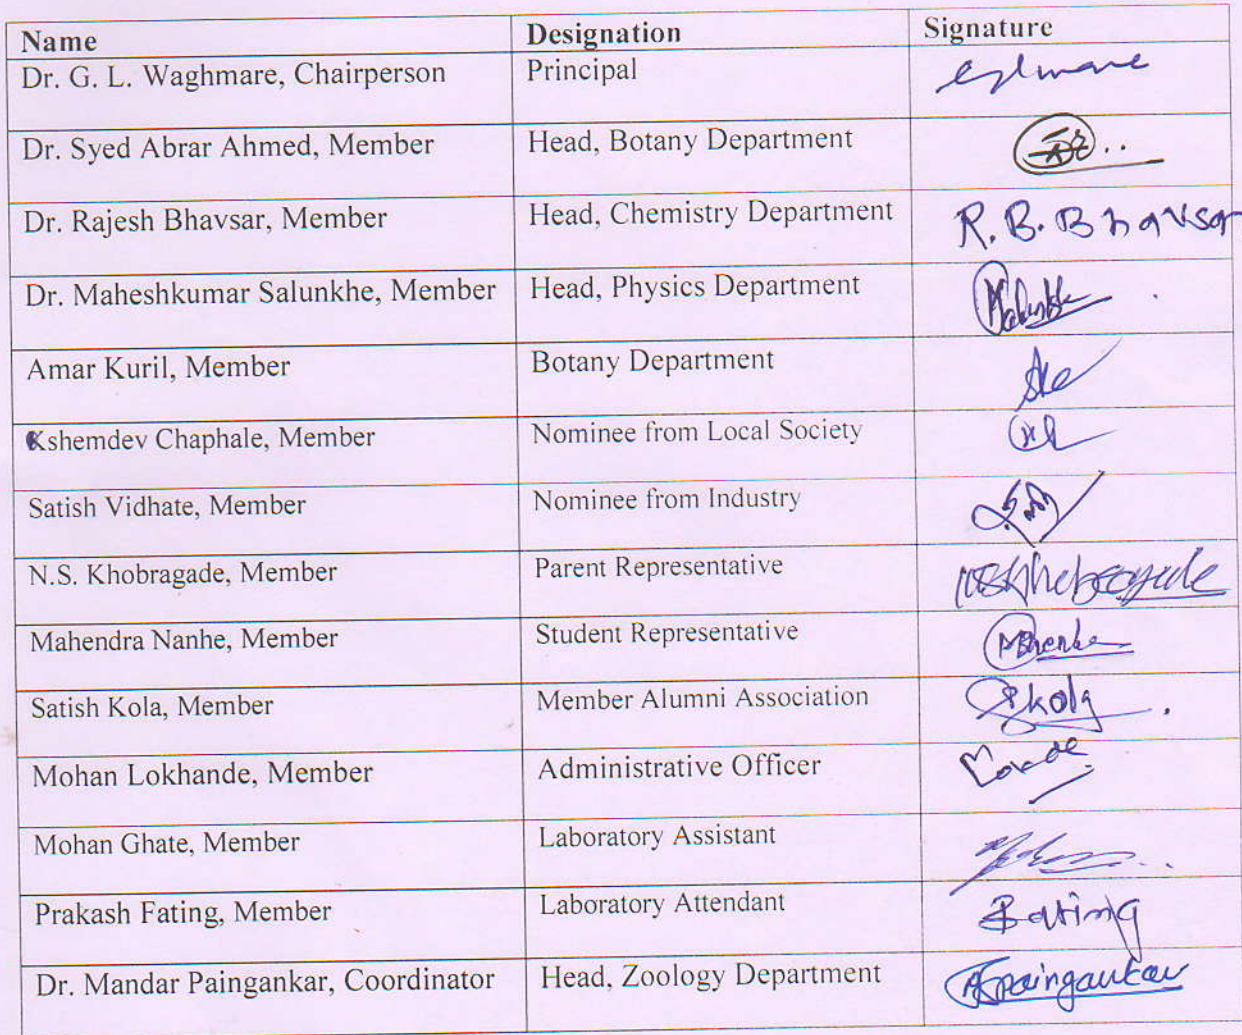 Name Designation Signature
Dr. G. L. Waghmare, Chairperson Principal
Dr. Syed Abrar Ahmed, Member Head, Botany Department
Dr. Rajesh Bhavsar, Member Head, Chemistry Department R. B. Bhavsar
Dr. Maheshkumar Salunkhe, Member Head, Physics Department Salunkhe
Amar Kuril, Member Botany Department
Kshemdev Chaphale, Member Nominee from Local Society
Satish Vidhate, Member Nominee from Industry
N.S. Khobragade, Member Parent Representative NSKhobragade
Mahendra Nanhe, Member Student Representative
Satish Kola, Member Member Alumni Association Skola
Mohan Lokhande, Member Administrative Officer
Mohan Ghate, Member Laboratory Assistant
Prakash Fating, Member Laboratory Attendant Fating
Dr. Mandar Paingankar, Coordinator Head, Zoology Department Paingankar